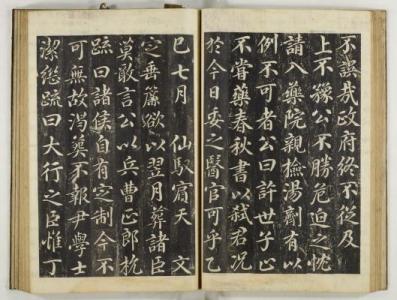 不誤哉政府終不從及
上不豫公不勝危迫之忱
請入藥院親檢湯劑有以
例不可者公曰許世子止
不嘗藥春秋書以弑君況
於今日委之醫官可乎乙
巳七月 仙馭賓天 文
定垂簾欲以翌月葬諸臣
莫敢言公以兵曹正郎抗
疏曰諸侯自有定制今不
可無故渴葬不報尹學士
潔繼疏曰大行之臣惟丁